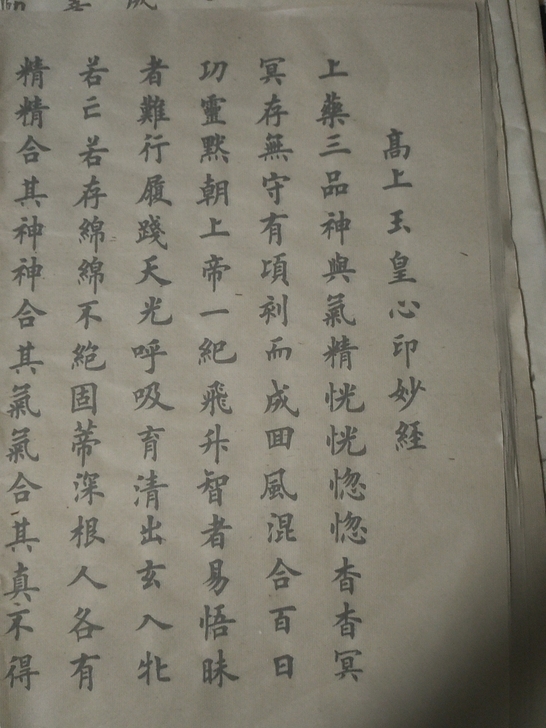 高上玉皇心印妙經
上藥三品神與氣精恍恍惚惚杳杳冥
冥存無守有頃刻而成回風混合百日
功靈默朝上帝一紀飛升智者易悟昧
者難行履踐天光呼吸育清出玄入牝
若亡若存綿綿不絕固蒂深根人各有
精精合其神神合其氣氣合其真不得